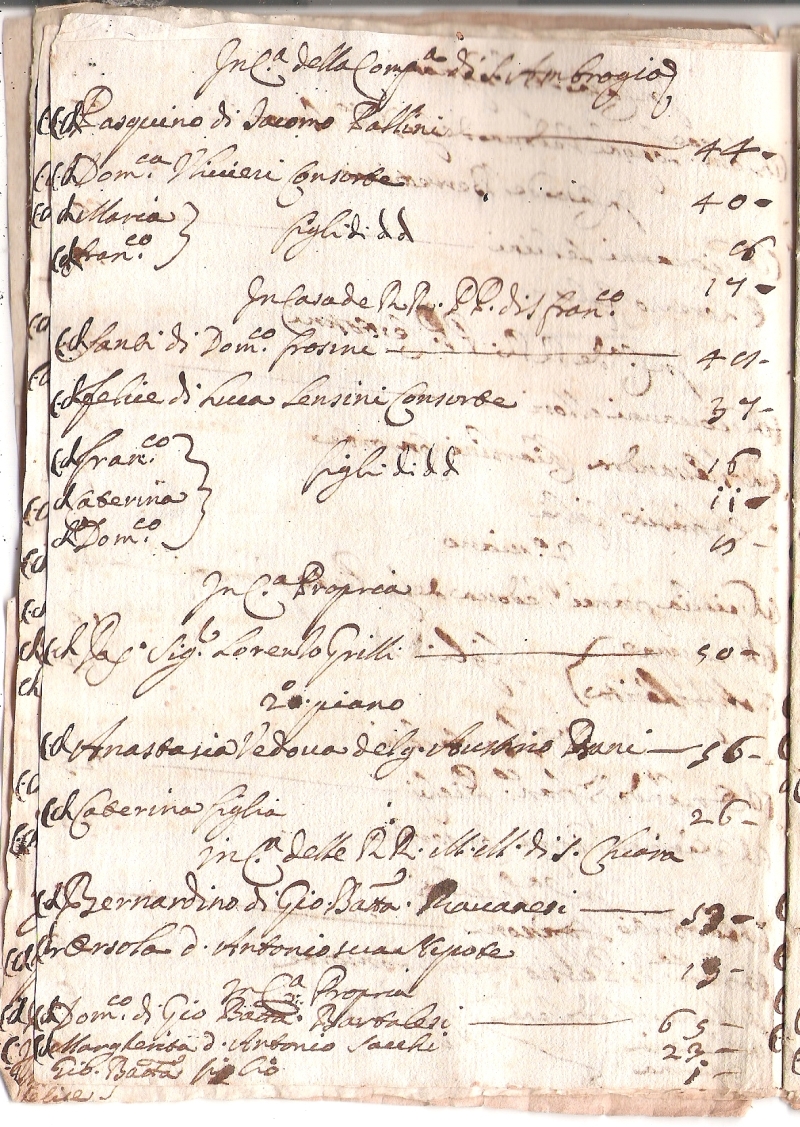 In C.a della Comp.a di S. Ambrogio
C. ch Pasquino di Iacomo Pallini 44
C. ch Dom.ca Consorte 40
C. ch Maria figli di d. d.
C. ch Fran.co 17
In Casa de RR. PP. di S. Fran.co
C. ch Santi di Dom.co Frosini
C. ch Felice di Luca Lensini Consorte 37
C. ch Fran.co figli di d. d. 16
ch Caterina 11
ch Dom.co
In C.a Propria
C. ch Sig.r Lorenzo Grilli 50
2.o piano
C. ch Anastasia Vedova del q. Austino Bani 56
C. ch Caterina figlia 26
in C.a delle RR. MM. di S. Chiara
C. ch Bernardino di Gio. Batta. 53
Orsola d. Antonio sua Nipote 13
in C.a Propria
C. ch Dom.co di Gio Batta. Bartalesi 65
C. ch Margherita d. Antonio Sacchi 23
Gio. Batta figlio 1